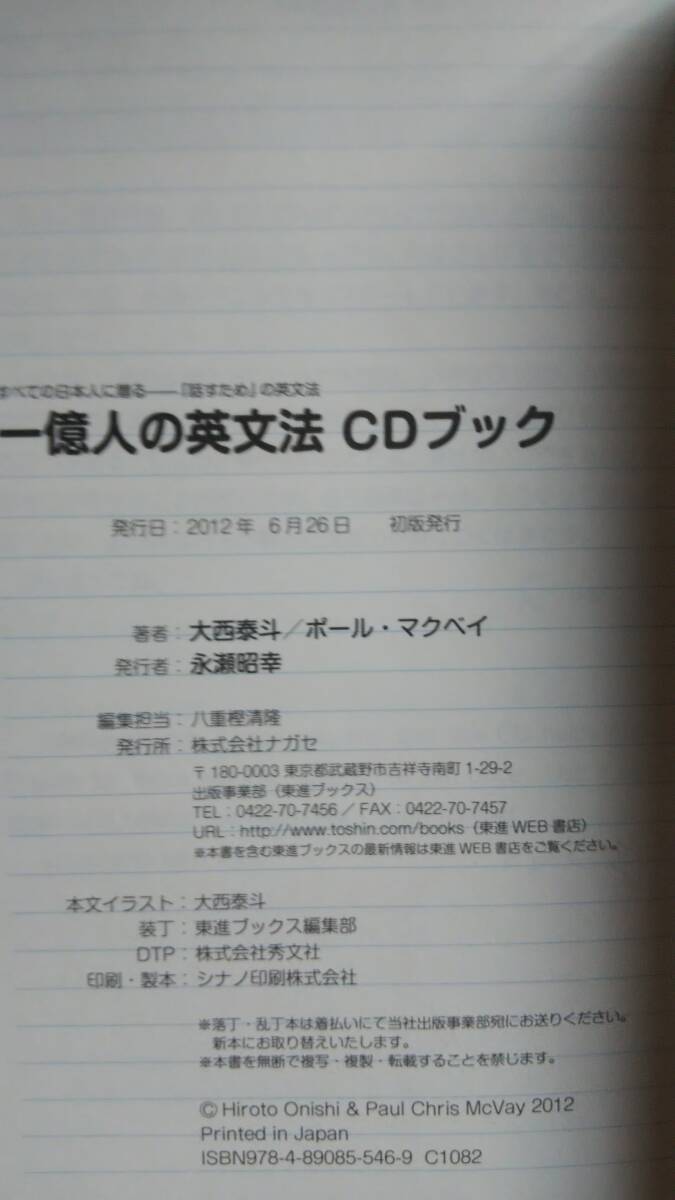 すべての日本人に贈る——「話すため」の英文法
一億人の英文法 CDブック
発行日：2012年 6月26日 初版発行
著者：大西泰斗／ポール・マクベイ
発行者：永瀬昭幸
編集担当：八重樫清隆
発行所：株式会社ナガセ
〒180-0003 東京都武蔵野市吉祥寺南町 1-29-2
出版事業部（東進ブックス）
TEL：0422-70-7456／FAX：0422-70-7457
URL：http://www.toshin.com/books（東進WEB書店）
※本書を含む東進ブックスの最新情報は東進WEB書店をご覧ください。
本文イラスト：大西泰斗
装丁：東進ブックス編集部
DTP：株式会社秀文社
印刷・製本：シナノ印刷株式会社
※落丁・乱丁本は着払いにて当社出版事業部宛にお送りください。
新本にお取り替えいたします。
※本書を無断で複写・複製・転載することを禁じます。
© Hiroto Onishi & Paul Chris McVay 2012
Printed in Japan
ISBN978-4-89085-546-9 C1082